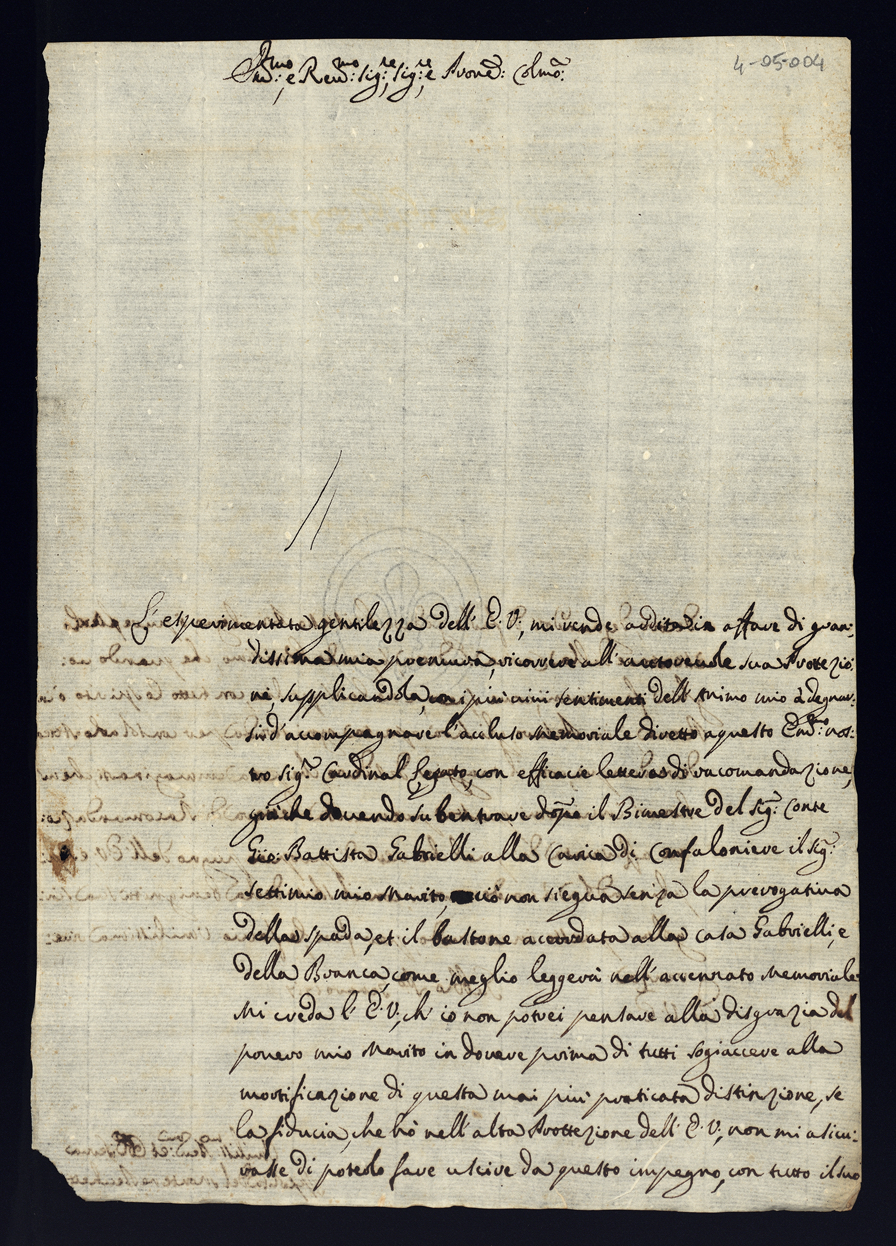 4-05-004
Em̄o: e Rev̄mo: Sig:re Sig:re e Prone: Colmo:
L'esperimentata gentilezza dell' E. V:, mi rende ardita in affare di gran:
dissima mia premura, ricorrere all'autorevole sua Prottezio:
ne, supplicandola, con i piu vivi sentimenti dell'Animo mio à degnar:
si d'accompagnare l'accluso Memoriale diretto a questo Em̄o: nos:
tro Sig:r Cardinal Legato, con efficacie lettera di racomandazione,
giache dovendo subentrare dopo il Bimestre del Sig:r Conte
Gio: Battista Gabrielli alla Carica di Confaloniere il Sig:r
Settimio mio Marito, ciò non siegua senza la prerogativa
della spada, et il bastone accordata alla casa Gabrielli, e
della Branca, come meglio leggerà nell'accennato Memoriale
Mi creda l' E. V:, ch'io non potrei pensare alla disgrazia del
povero mio Marito in dovere prima di tutti sogiaccere alla
mortificazione di questa mai più praticata distinzione, se
la fiducia, che hò nell'alta Prottezione dell' E. V:, non mi asicu:
rasse di poterlo fare uscire da questo impegno, con tutto il suo